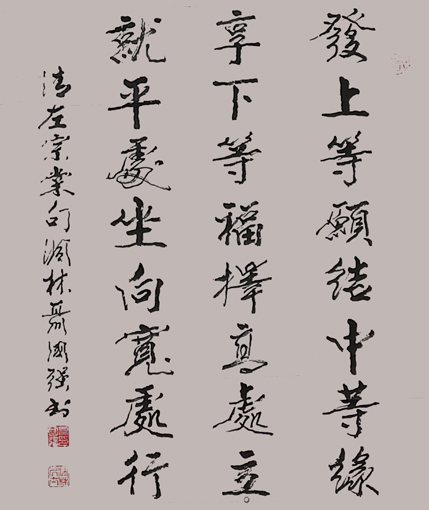 發上等願結中等緣
享下等福擇高處立
就平處坐向寬處行
清左宗棠句林聶國强书